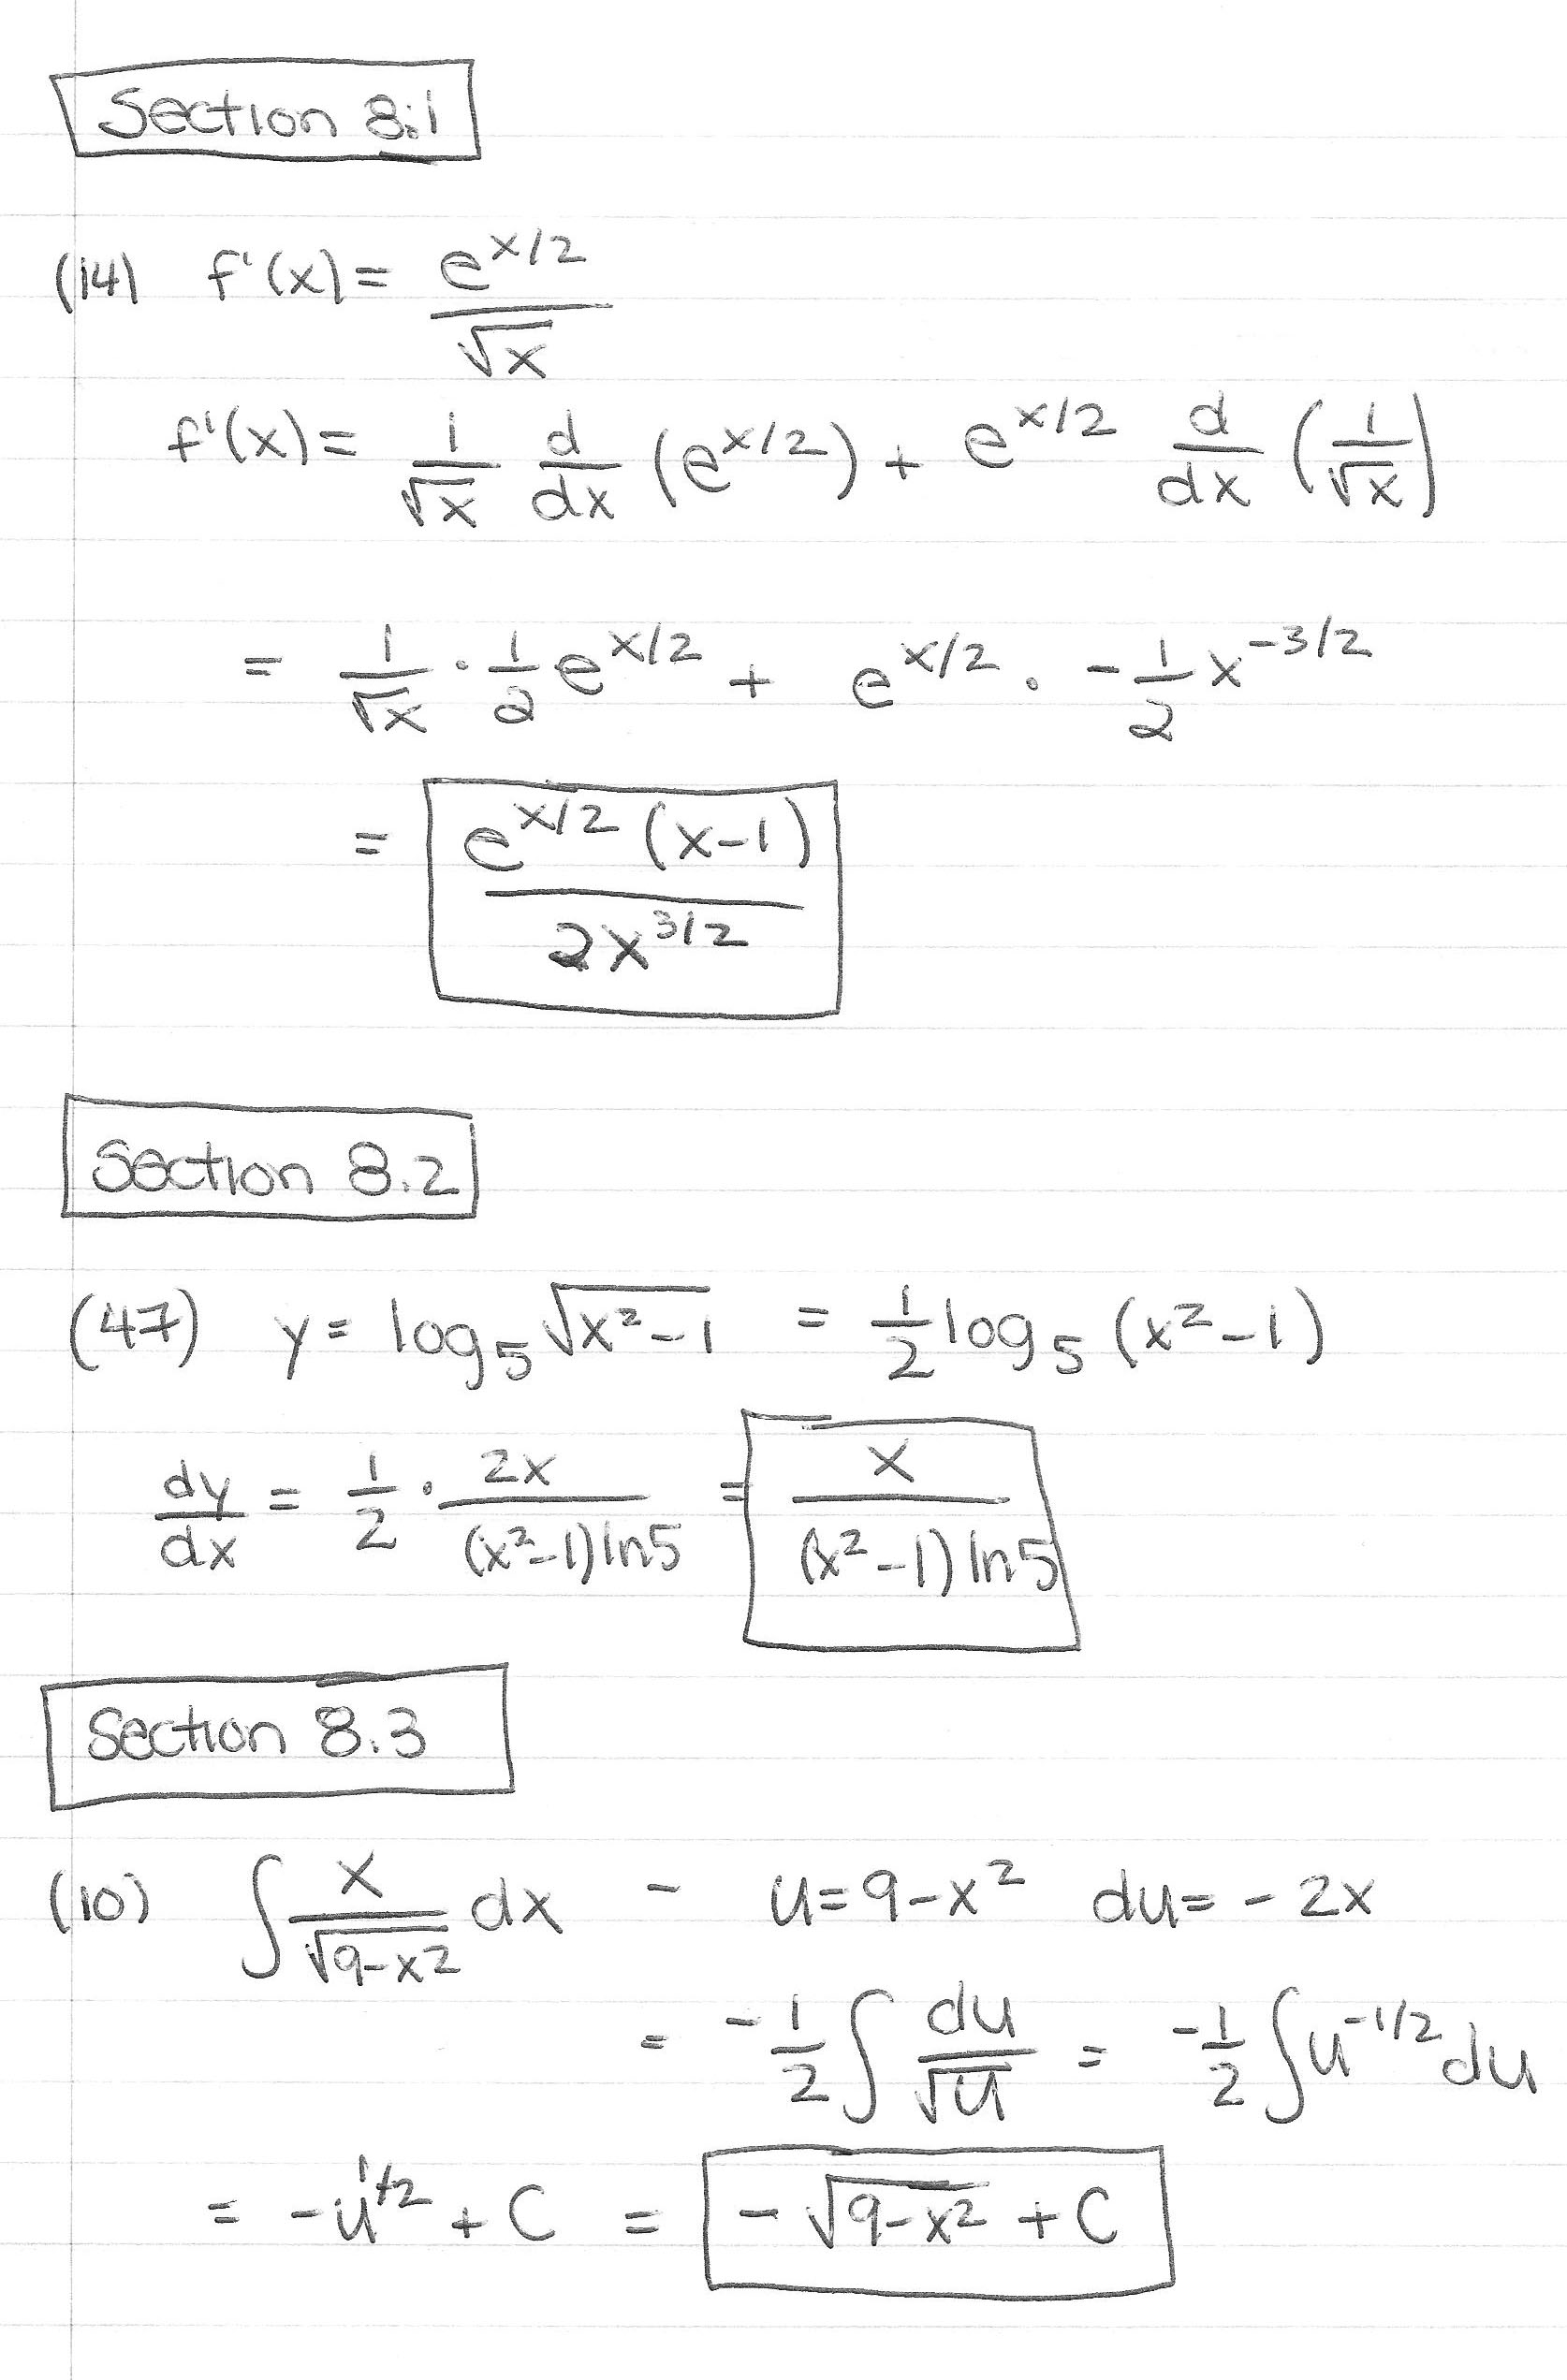 Section 8.1
(14) f'(x) = e^(x/2) / √x
f'(x) = 1/√x d/dx (e^(x/2)) + e^(x/2) d/dx (1/√x)
= 1/√x · 1/2 e^(x/2) + e^(x/2) · -1/2 x^(-3/2)
= e^(x/2) (x-1) / 2x^(3/2)
Section 8.2
(47) y = log₅ √(x²-1) = 1/2 log₅ (x²-1)
dy/dx = 1/2 · 2x / (x²-1) ln5 = x / (x²-1) ln5
Section 8.3
(10) ∫ x/√(9-x²) dx - u=9-x² du= -2x
= -1/2 ∫ du/√u = -1/2 ∫ u^(-1/2) du
= -u^(1/2) + C = -√(9-x²) + C